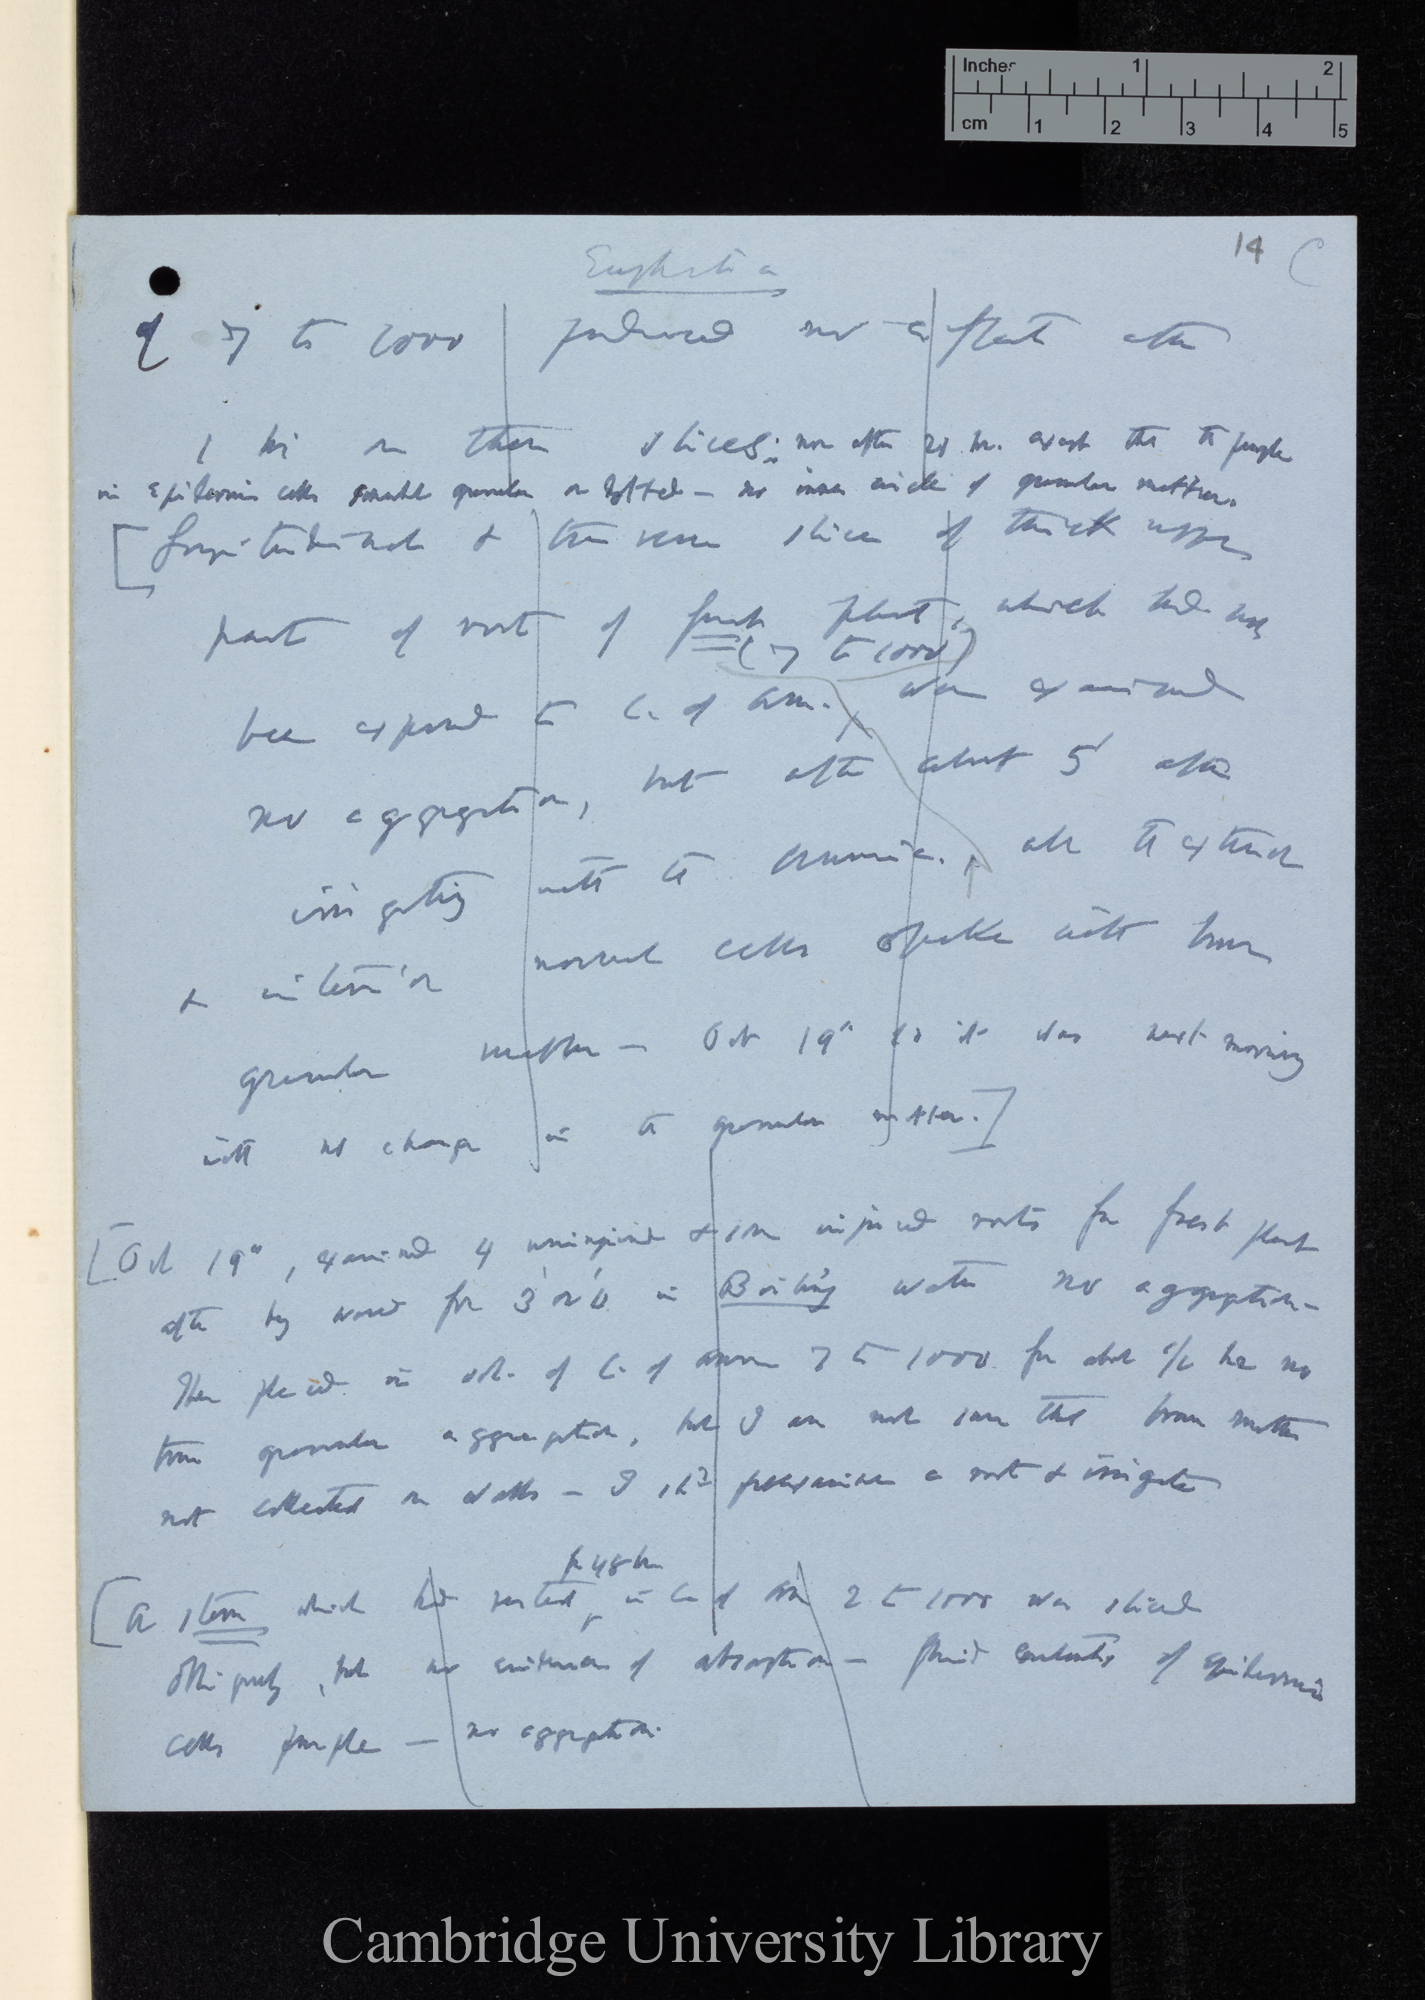 Inches 1 2
cm 1 2 3 4 5
14 C
of 7 to 1000 produced no effect after
1 hr on these slices; nor after 20 hr. except that the purple
in epidermic cells granular or no inner circle of granular matter.
[Longitudinal & transverse slices of thick upper
part of root of fresh plant, which had not
(7 to 1000)
been exposed to C. of Amm., were examined
no aggregation, but after about 5' after
irrigating with the ammonia. all the exterior
& interior normal cells opake with brown
granular matter — Oct 19" so it was next morning
with no change in the granular matter.]
[Oct 19", examined 4 uninjured & some injured roots from fresh plant
after being warmed for 3' or 4' in Boiling water no aggregation —
Then placed in sol. of C. of ammon 7 to 1000 for about hr no
true granular aggregation, but I am not sure that brown matter
not collected on walls — I shd a root & irrigate
for 48 hr
[A stem which had rested, in C. of Am 2 to 1000 was sliced
obliquely, but no evidence of absorption — fluid contents of epidermic
cells purple — no aggregation.
Cambridge University Library